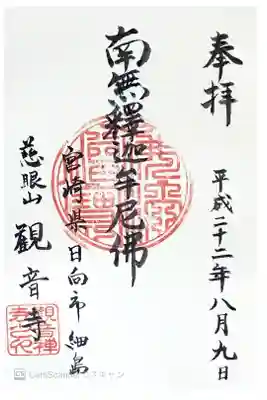 奉拝
平成二十二年八月九日
南無釋迦牟尼佛
宮崎県日向市細島
慈眼山
観音寺
CamScanner でスキャン